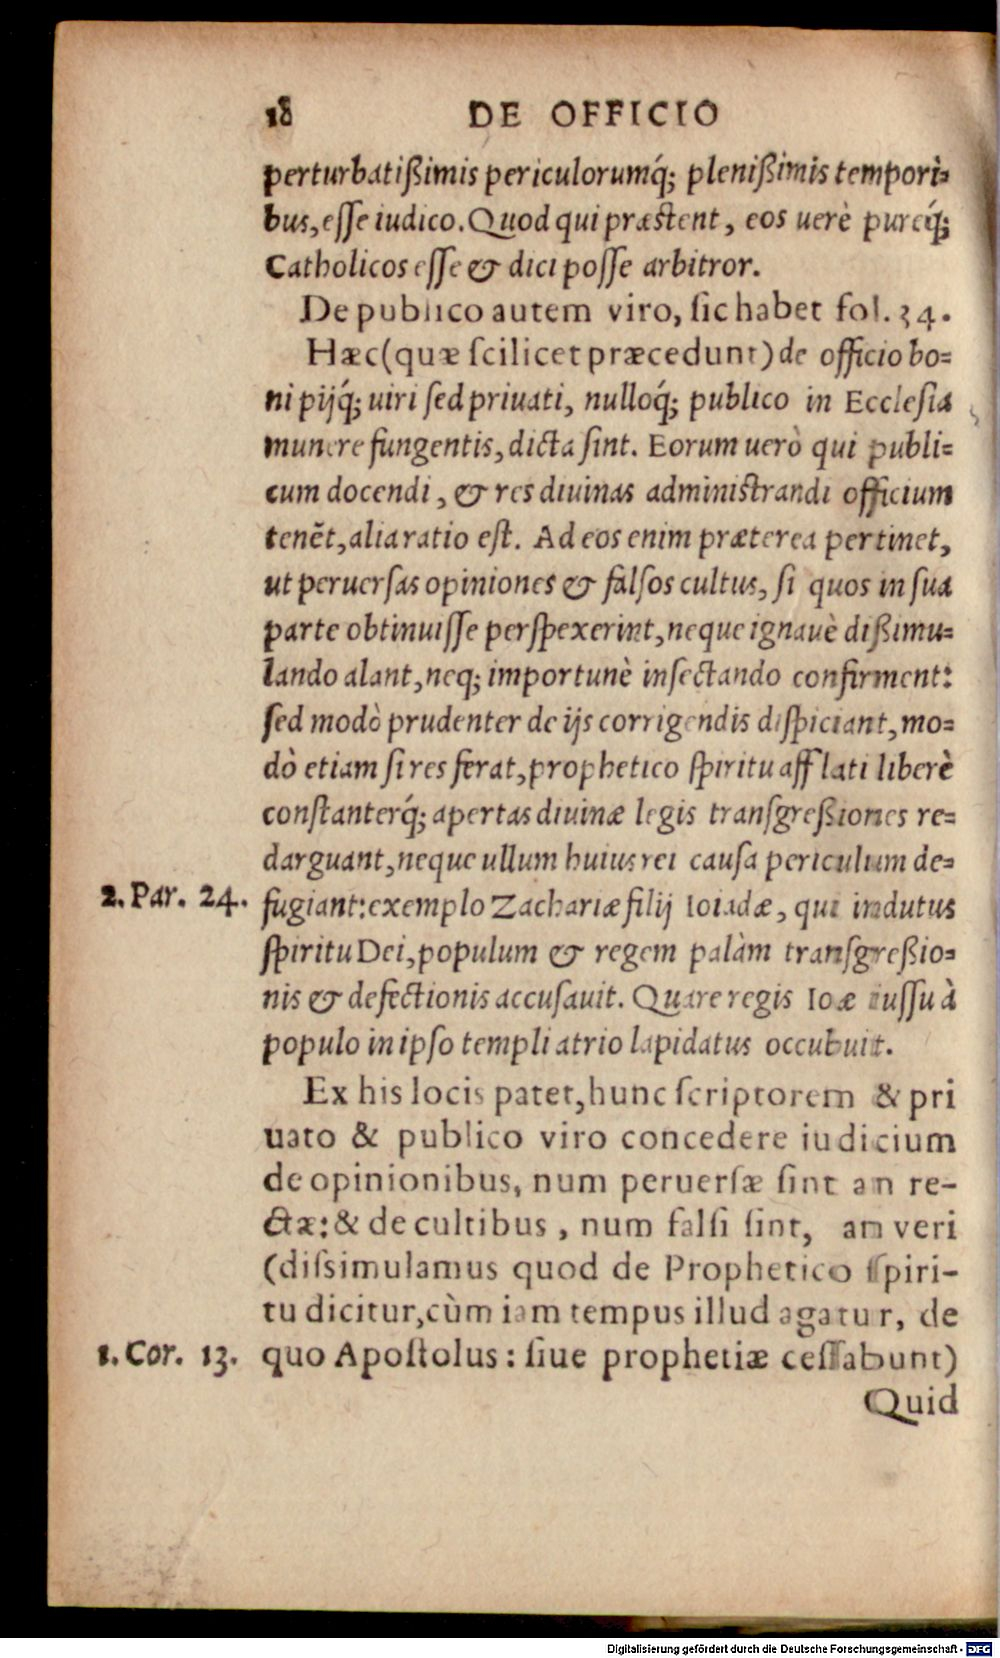 18 DE OFFICIO
perturbatißimis periculorumq́; plenißimis tempori=
bus, eſſe iudico. Quod qui præſtent, eos uerè pureq́;
Catholicos eſſe & dici poſſe arbitror.
De publico autem viro, ſic habet fol. 34.
Hæc (quæ ſcilicet præcedunt) de officio bo=
ni pijq́; uiri ſed priuati, nulloq́; publico in Eccleſia
munere fungentis, dicta ſint. Eorum uerò qui publi=
cum docendi, & res diuinas adminiſtrandi officium
tenēt, alia ratio eſt. Ad eos enim præterea pertinet,
ut peruerſas opiniones & falſos cultus, ſi quos in ſua
parte obtinuiſſe perſpexerint, neque ignauè dißimu=
lando alant, neq; importunè inſectando confirment:
ſed modò prudenter de ijs corrigendis diſpiciant, mo=
dò etiam ſi res ferat, prophetico ſpiritu afflati liberè
conſtanterq́; apertas diuinæ legis tranſgreßiones re=
darguant, neque ullum huius rei cauſa periculum de=
2. Par. 24. fugiant: exemplo Zachariæ filij Ioiadæ, qui indutus
ſpiritu Dei, populum & regem palàm tranſgreßio=
nis & defectionis accuſauit. Quare regis Ioæ iuſſu à
populo in ipſo templi atrio lapidatus occubuit.
Ex his locis patet, hunc ſcriptorem & pri
uato & publico viro concedere iudicium
de opinionibus, num peruerſæ ſint an re-
ctæ: & de cultibus, num falſi ſint, an veri
(diſsimulamus quod de Prophetico ſpiri-
tu dicitur, cùm iam tempus illud agatur, de
1. Cor. 13. quo Apoſtolus: ſiue prophetiæ ceſſabunt)
Quid
Digitalisierung gefördert durch die Deutsche Forschungsgemeinschaft - DFG